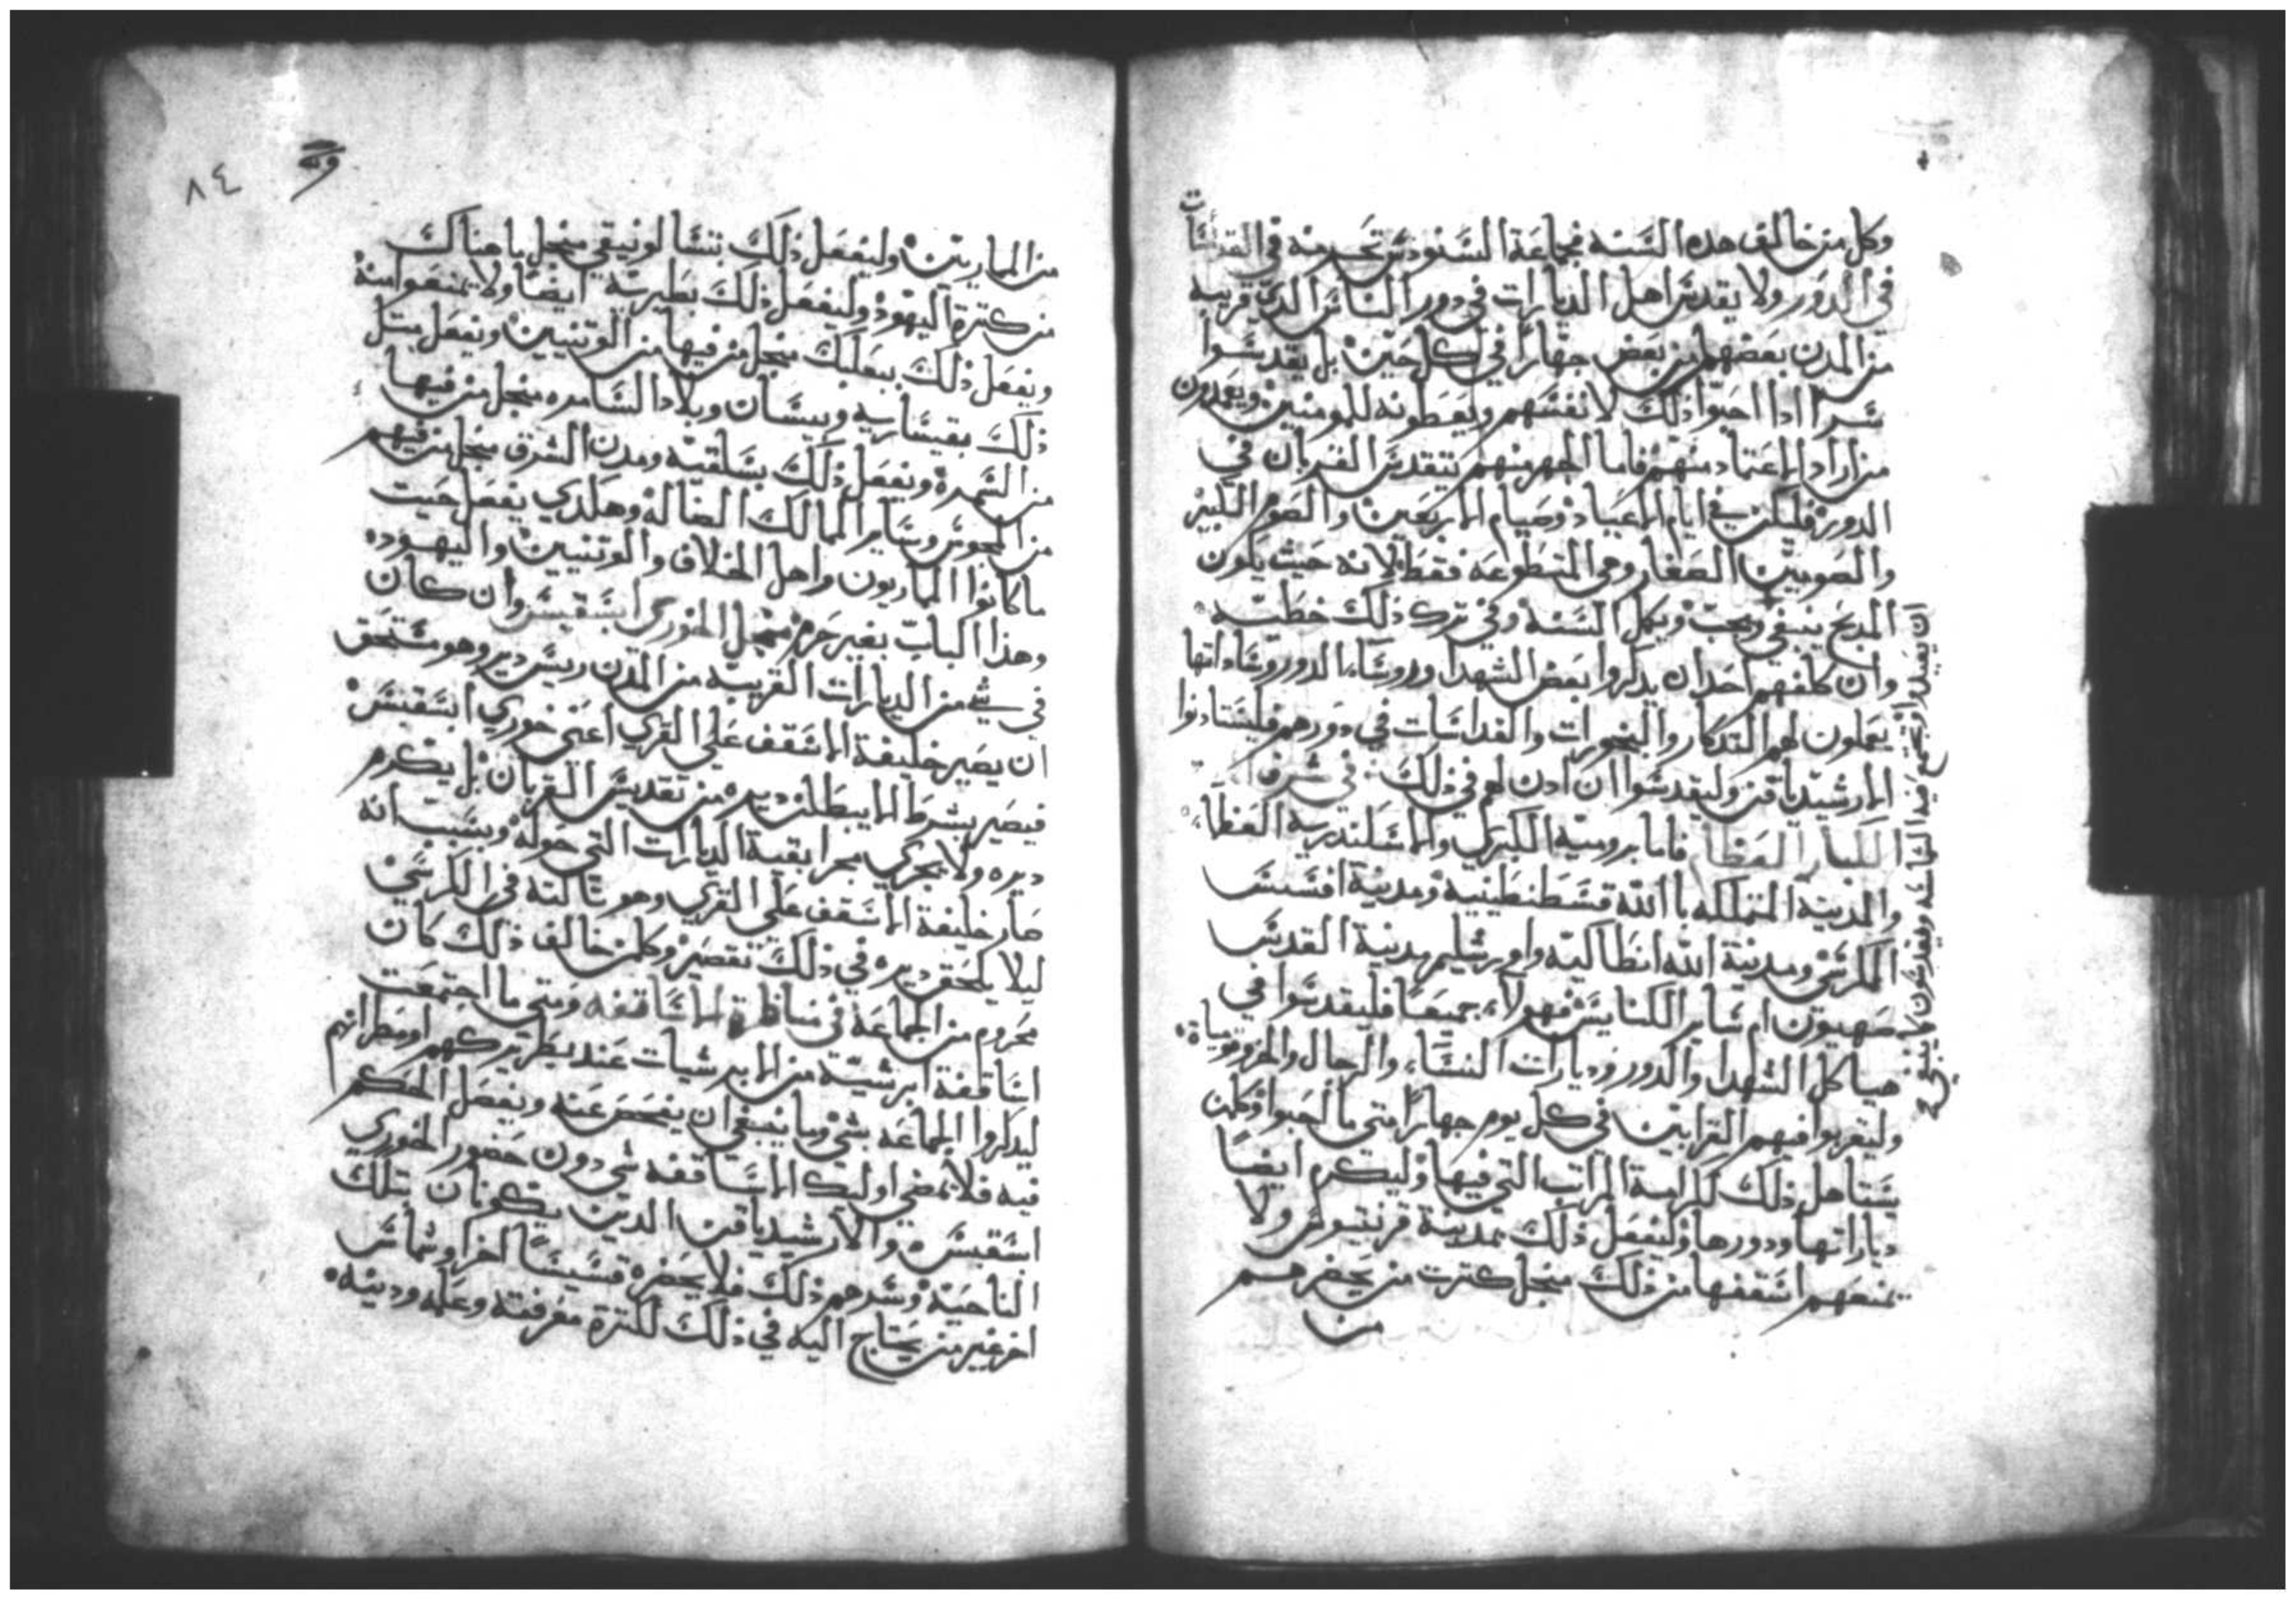 وكل من خالف هده السنه فجماعة السنودس تحرمه في القداسات
في الدور ولا يقدس اهل الديارات في دور الناس الدي قريبه
من المدن بعضهم من بعض جهارا في كل حين بل يقدسوا
سرا ادا احبوا ذلك لانفسهم ويعطونه للمومنين ويعمدون
من اراد الاعتماد منهم فاما الجهر منهم بتقديس القربان في
الدور فليكن في ايام الاعياد وصيام الاربعين والصوم الكبير
والصومين الصغار وهي المتطوعه فقط لانه حيث يكون
المدبح ينبغي ويجب ويكمل السنه وفي ترك ذلك خطيه
وان كلفهم احد ان يدكروا بعض الشهدا وروسا الدور وساداتها
يعملون لهم التدكار والبخورات والقداسات في دورهم فليستادنوا
الارشيدياقن وليقدسوا ان ادن لهم في ذلك في شرف
الكبار العظما فاما بروميه الكبري والاسكندريه العظما
والمدينه المتملكه باالله قسطنطينيه ومدينة افسس
الكرسي ومدينة الله انطاكيه واورشليم مدينة القدس
صهيون ام ساير الكنايس فهولاء جميعا فليقدسوا في
هياكل الشهدا والدور وديارات النساء والرجال
وليقربوا فيهم القرابين في كل يوم جهارا متى ما احبوا وكلمن
يستاهل ذلك لكرامة المراتب التي فيها وليكرم ايضا
دياراتها ودورها وليفعل ذلك بمدينة قرنتيوس ولا
يمنعهم اسقفها من ذلك منجل كترت من يحضرهم
من
٨٤
من الماريين وليفعل ذلك بتسالونيقي منجل ما هناك
من كترة اليهود وليفعل ذلك بطبرية ايضا ولا يمنعوا منه
ويفعل ذلك ببعلبك منجل من فيها من الوتنيين ويفعل متل
ذلك بقيساريه وبيسان وبلاد السامره منجل من فيها
من السمره ويفعل ذلك بسلقيه ومدن الشرق منجل من فيهم
من المجوس وساير الممالك الضاله وهكدي يفعل حيت
ما كانوا الماريون واهل الخلاف والوتنيين واليهود
وهذا الباب بغير حرم منجل الخوري ابسقبس وان كان
في شي من الديارات القريبه من المدن ريس دير وهو مستحق
ان يصير خليفة الاسقف على القري اعني خوري ابسقبس
فيصير بشرط الا يبطلن ديره من تقديس القربان بل يكرم
ديره ولا يجري مجرا بقية الديارات التي حوله وبسبب انه
صار خليفة الاسقف على القري وهو تالته في الكرسي
ليلا يلحق ديره في ذلك تقصير وكلمن خالف ذلك كان
محروم من الجماعة في مناظرة الاساقفه ومتى ما اجتمعت
اساقفة ابرشية من الابرشيات عند بطريركهم او مطرانهم
ليدكروا الجماعه بشي وما ينبغي ان يفحص عنه ويفصل الحكم
فيه فلا يمضي اوليك الاساقفه شي دون حضور الخوري
ابسقبس والارشيدياقن الدين يكونان بتلك
الناحيه وسدهم ذلك فلا يحضره قسيسا اخر او شماس
اخر غير من يحتاج اليه في ذلك لكترة معرفته وعلمه ودينه